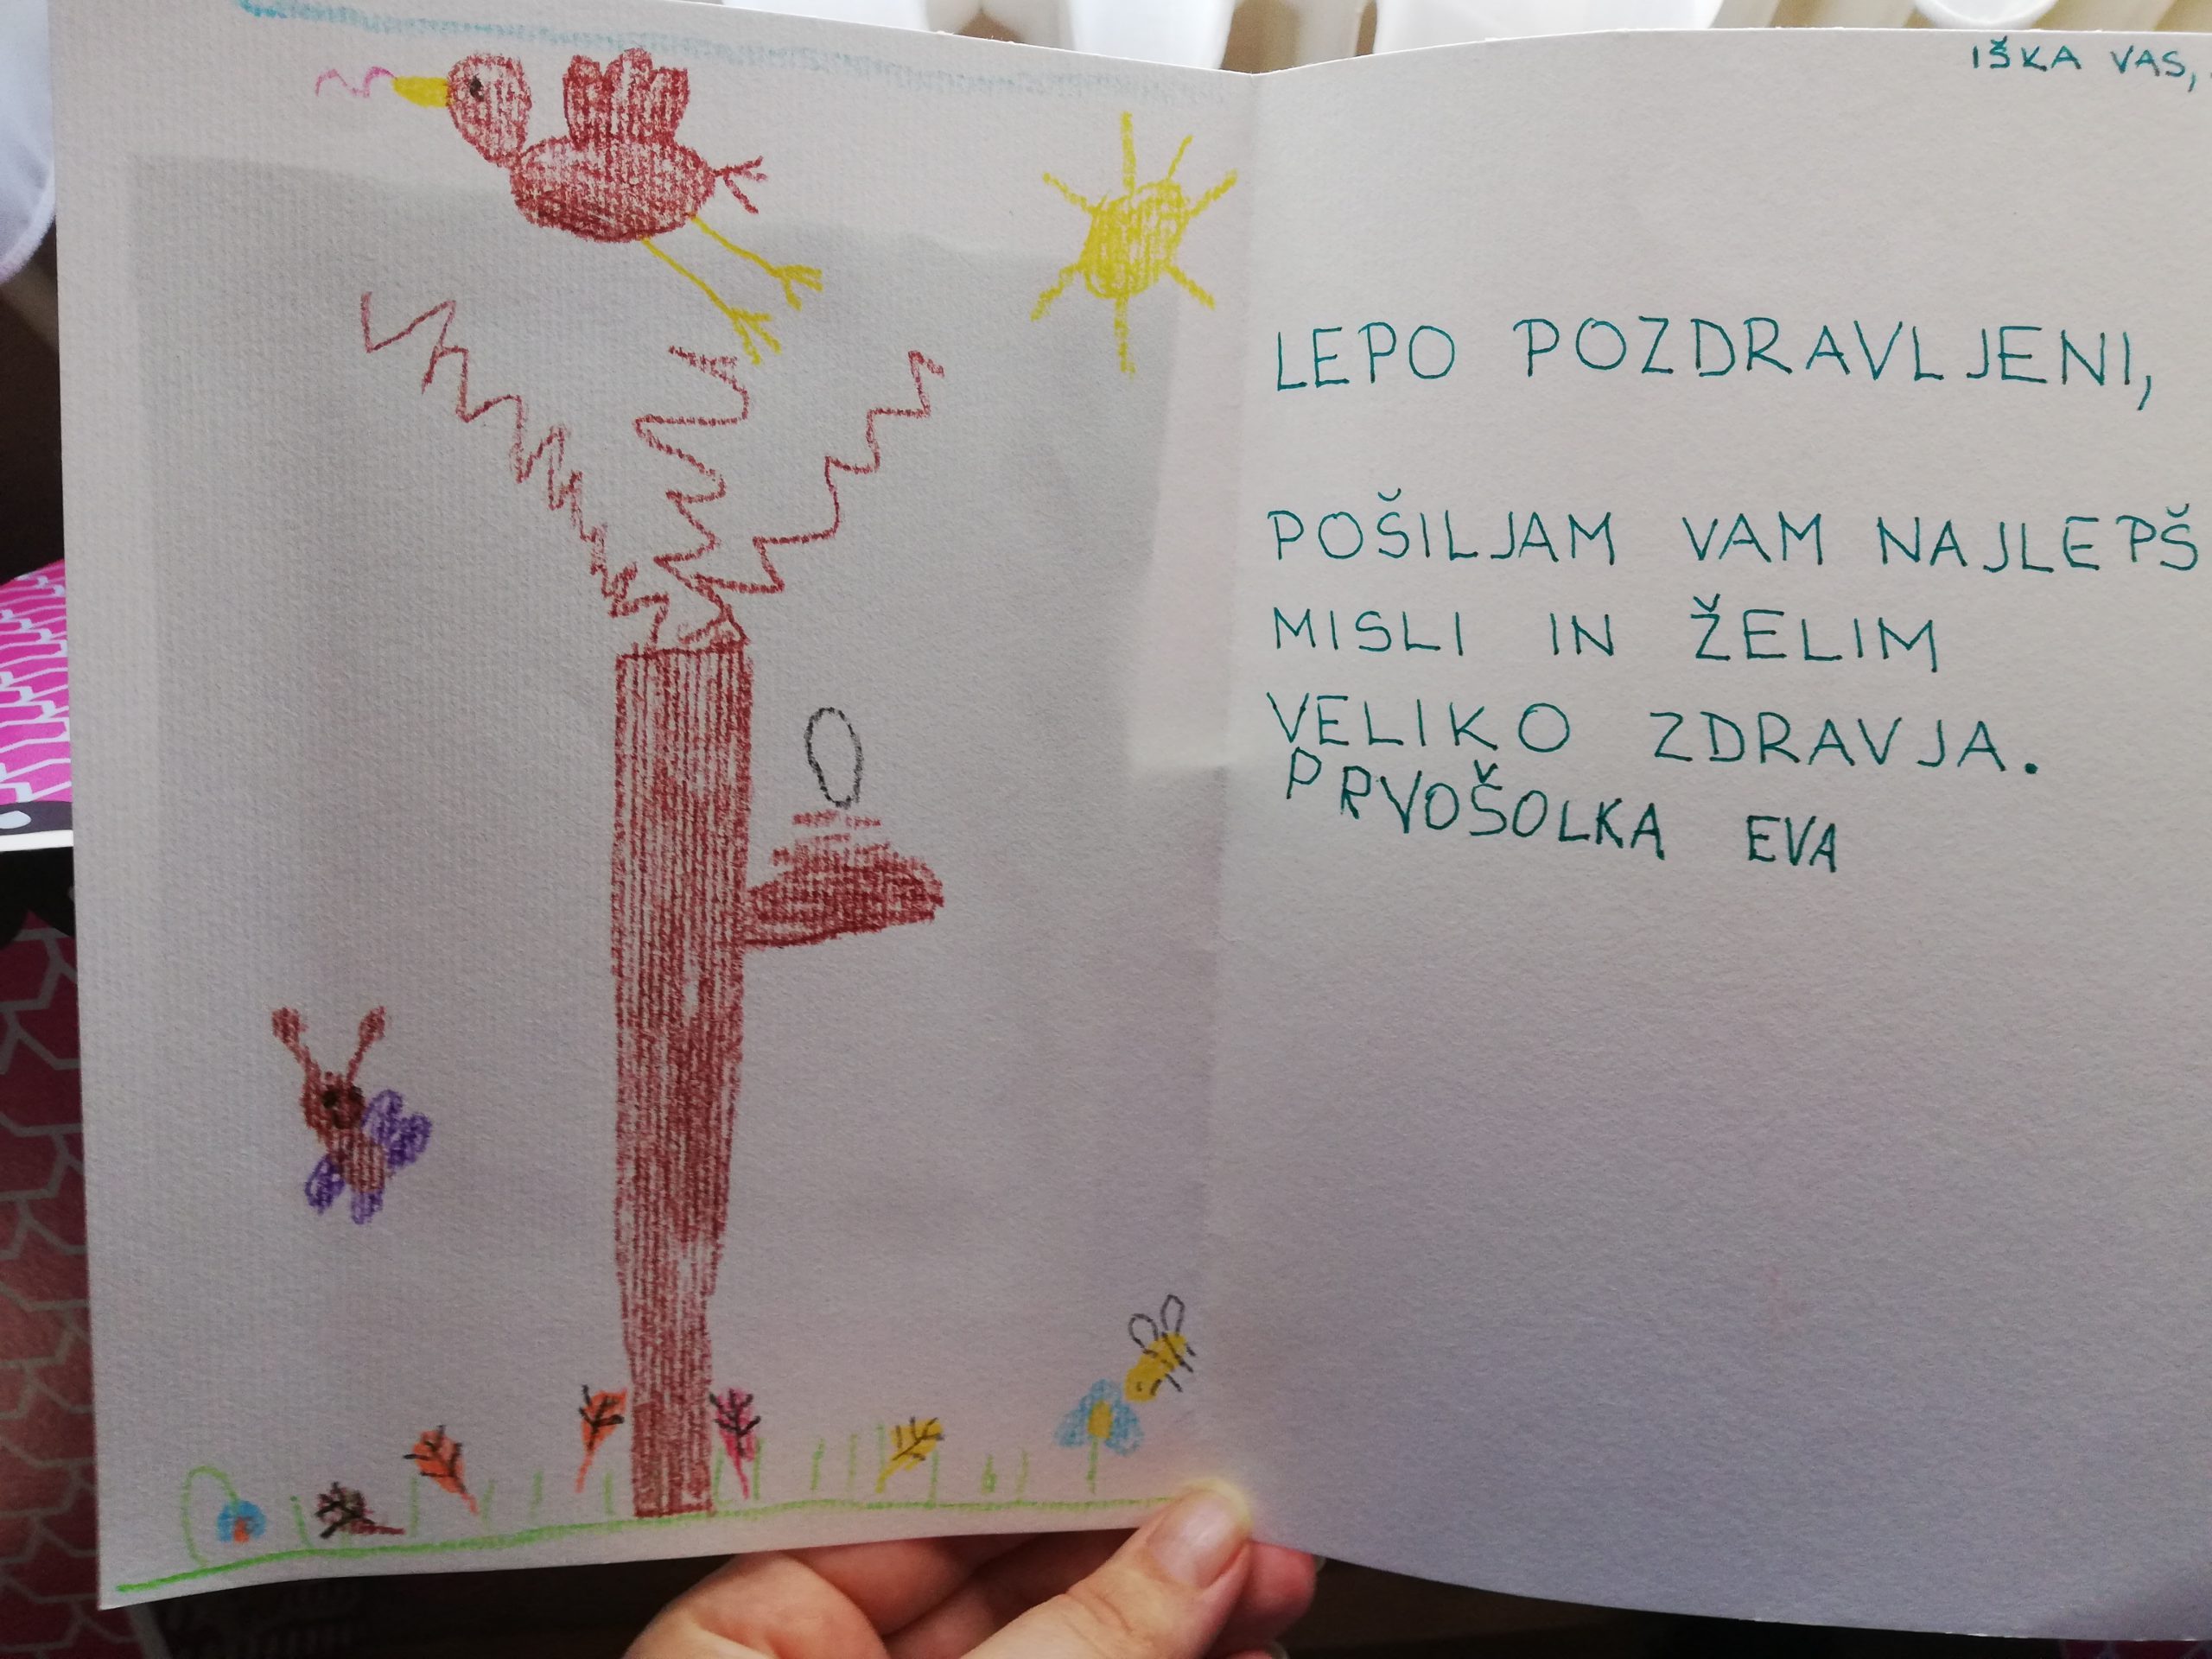 IŠKA VAS,
LEPO POZDRAVLJENI,
POŠILJAM VAM NAJLEPŠ
MISLI IN ŽELIM
VELIKO ZDRAVJA.
PRVOŠOLKA EVA